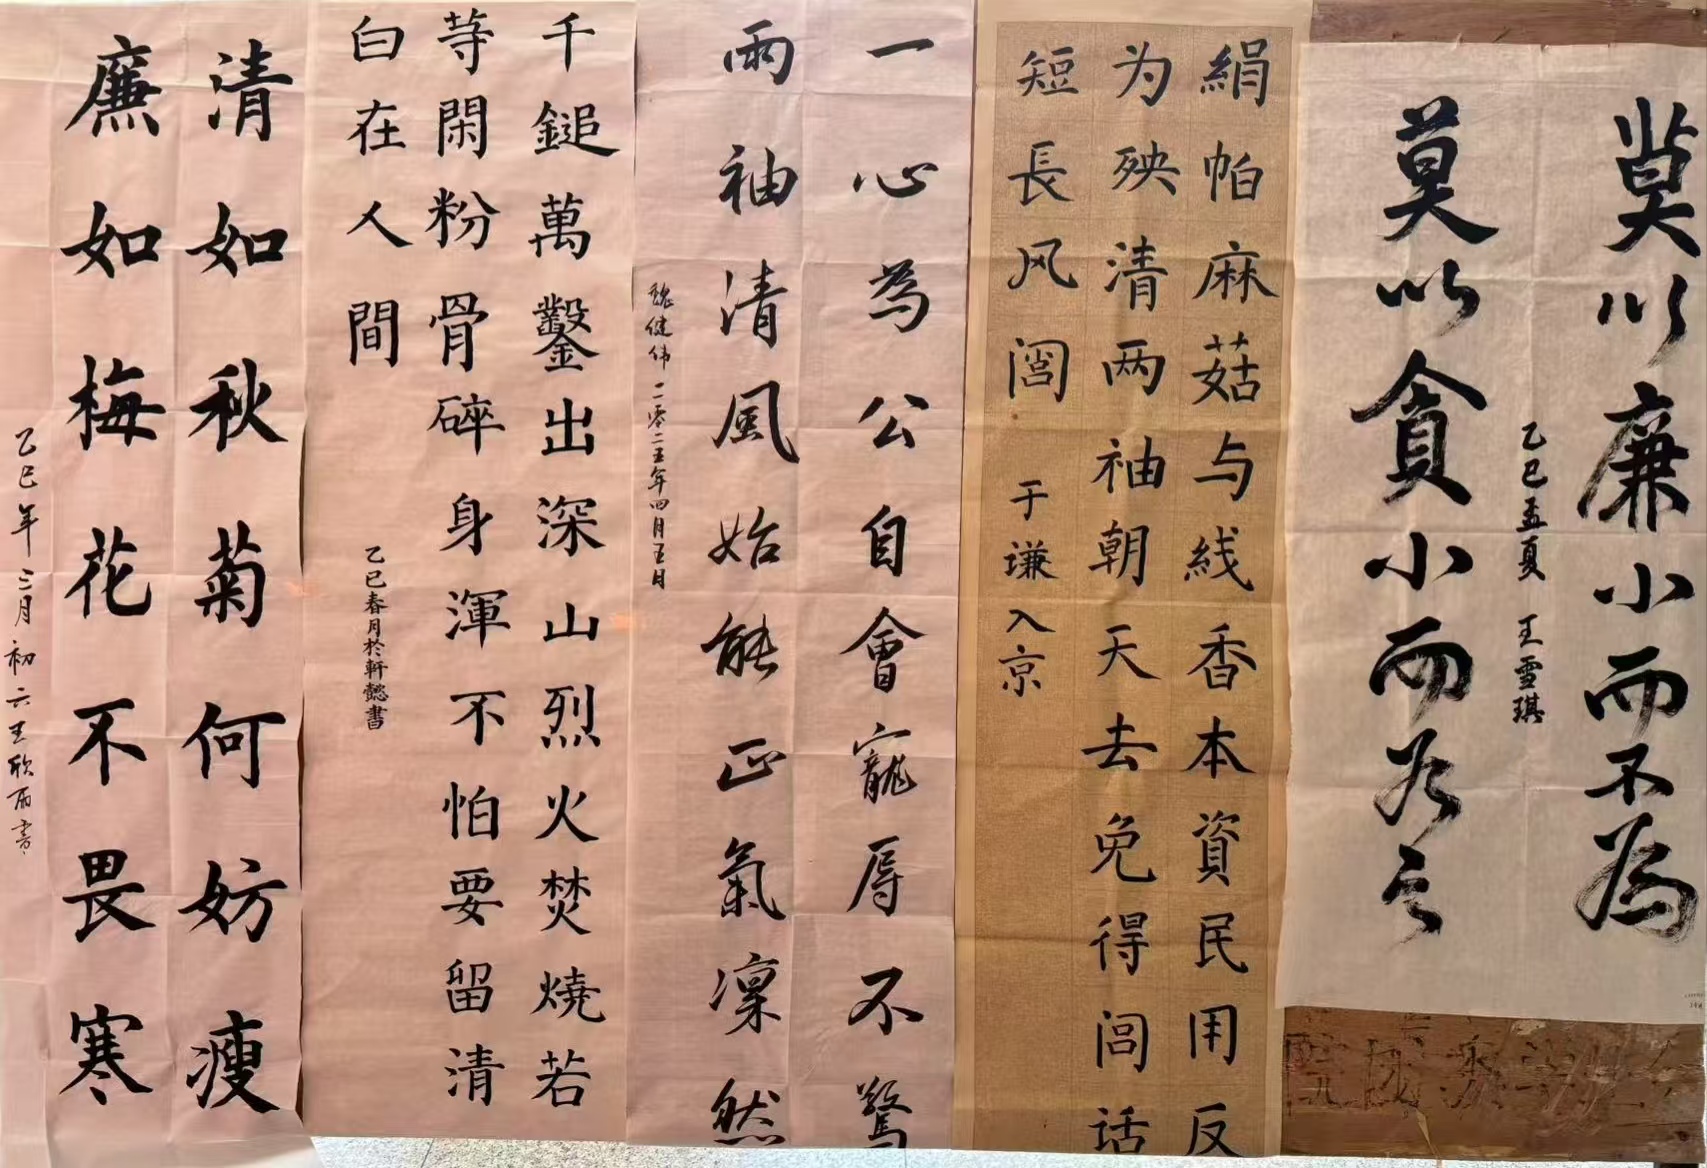 莫以廉小而不為
莫以貪小而为之
乙巳孟夏 王雪琪
絹帕麻菇与线香本資民用反
为殃清两袖朝天去免得閭话
短長风闾 于谦入京
一心為公自會寵辱不驚
兩袖清風始能正氣凜然
魏健伟二零二五年四月五日
千鎚萬鑿出深山烈火焚燒若
等閑粉骨碎身渾不怕要留清
白在人間
乙巳春月於軒懿書
清如秋菊何妨瘦
廉如梅花不畏寒
乙巳年三月初六王欣雨書